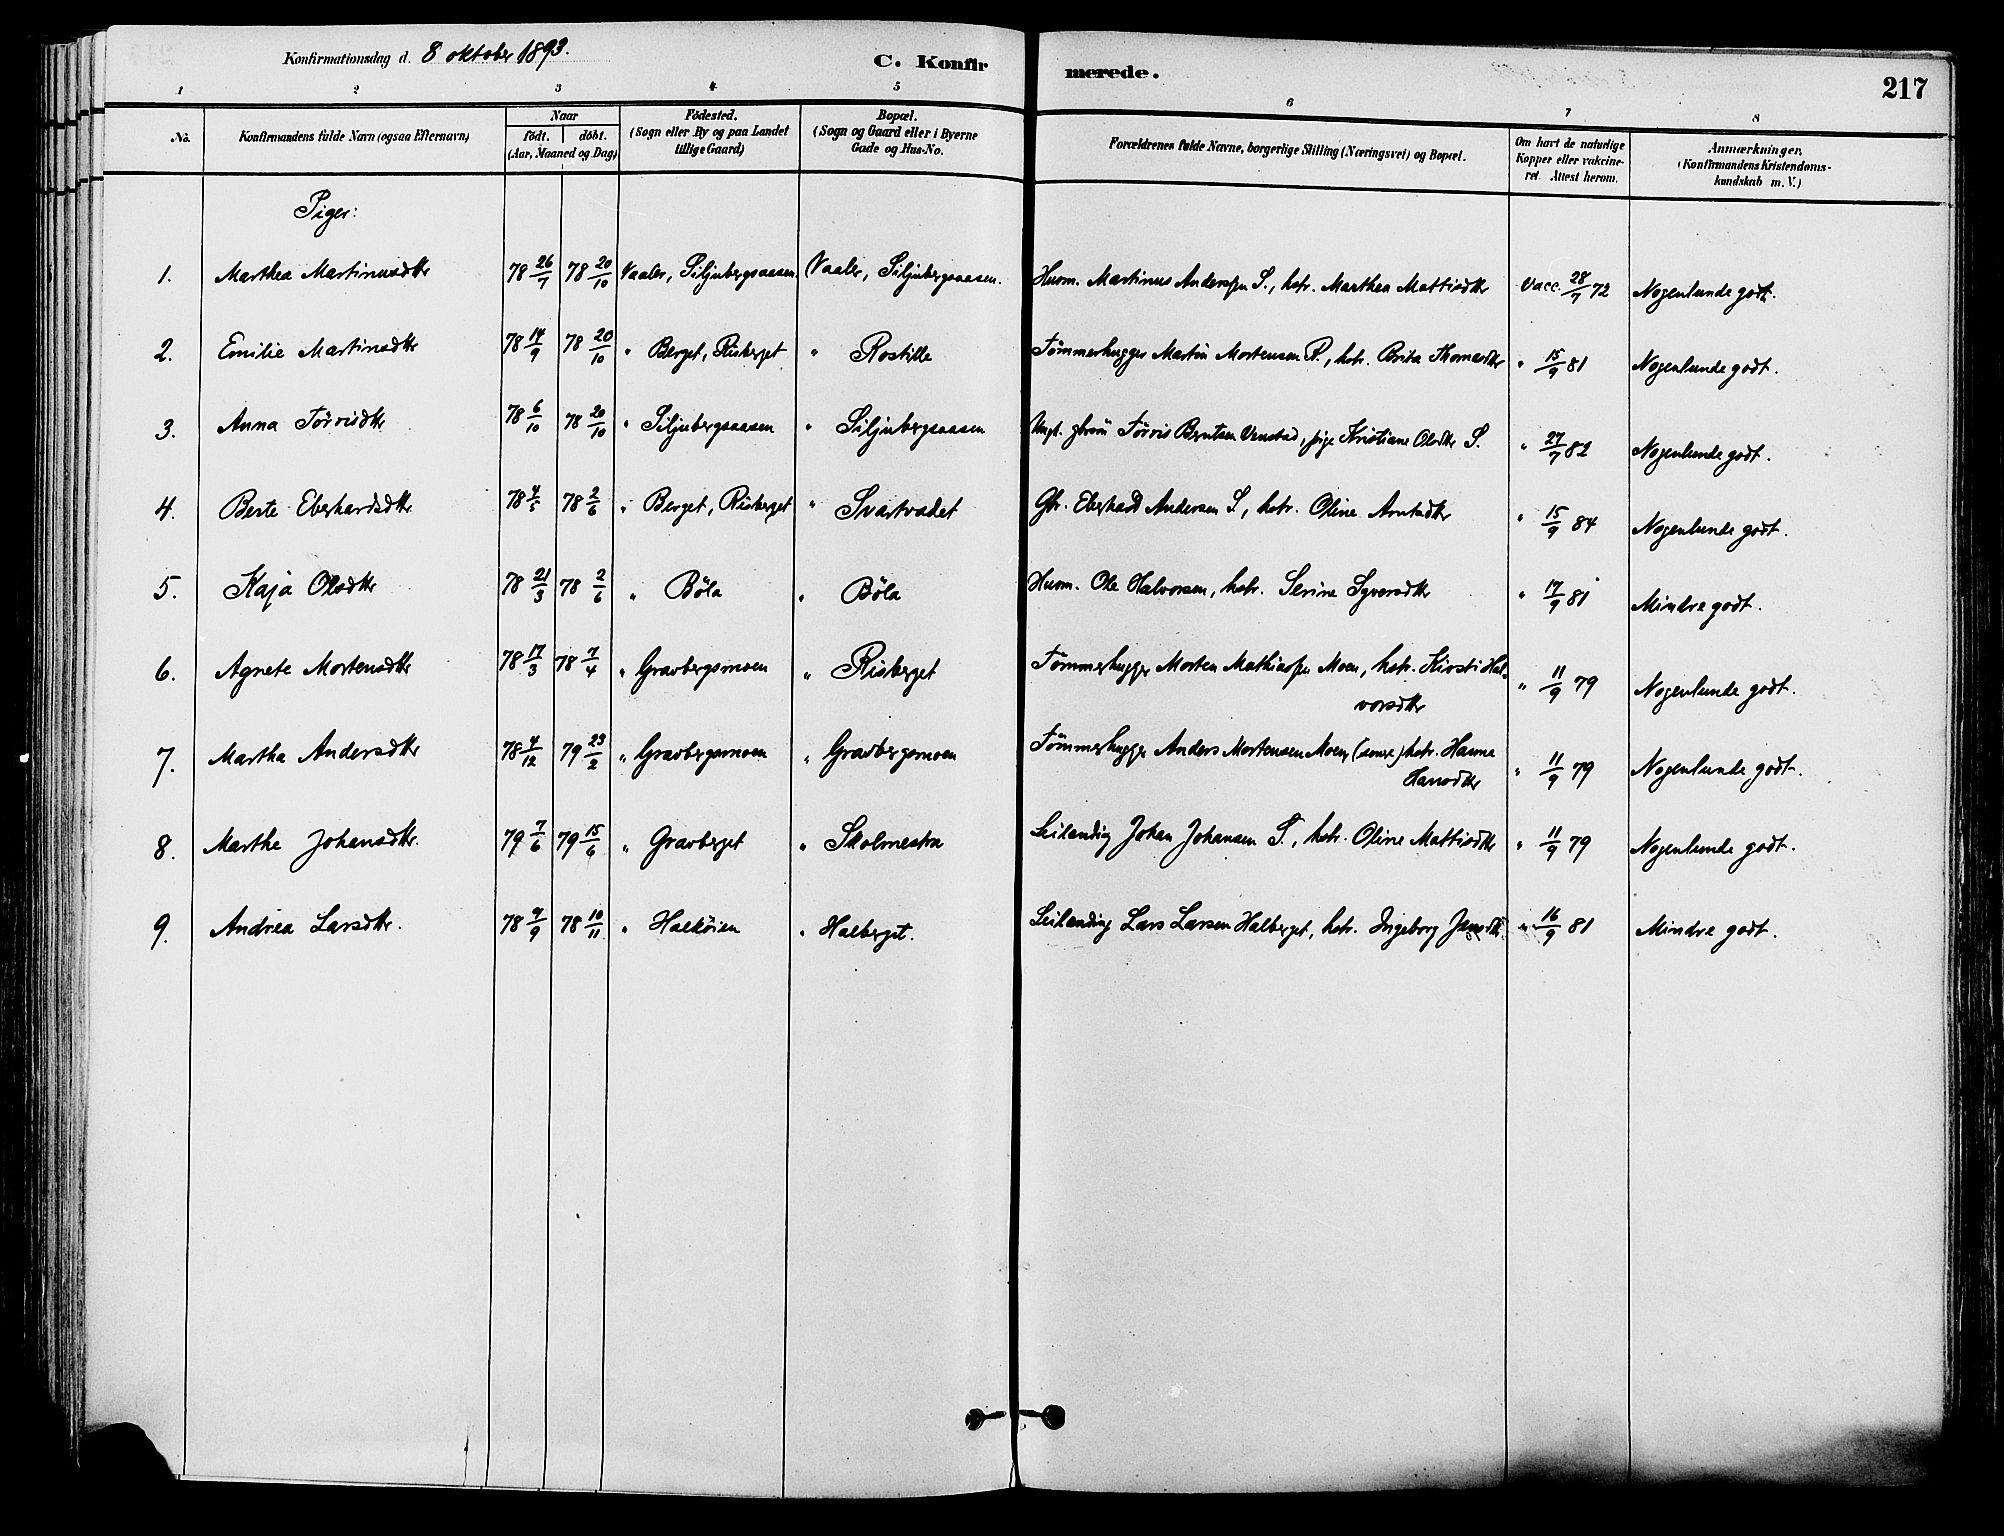 Konfirmationsdag d. 8 oktober 1893.
C. Konfirmerede.
217
1 2 3 4 5 6 7 8
No. Konfirmandens fulde Navn (ogsaa Efternavn) Naar födt. döbt. (Aar, Maaned og Dag) Födested. (Sogn eller By og paa Landet tillige Gaard) Bopæl. (Sogn og Gaard eller i Byerne Gade og Hus-No. Forældrenes fulde Navne, borgerlige Stilling (Næringsvei) og Bopæl. Om havt de naturlige Kopper eller vakcineret Attest herom. Anmærkninger. (Konfirmandens Kristendomskundskab m. V.)
Piger:
1. Marthea Martinusdtr 78 26/7 78 20/10 Vaaler, Siljubergsaasen Vaaler, Siljubergsaasen. Husm. Martinus Anderssen S., hstr. Marthea Mattisdtr Vacc. 28/7 72 Nogenlunde godt.
2. Emilie Martinsdtr 78 14/9 78 20/10 " Berget, Risberget " Rostille Tømmerhugger Martin Mortensen R., hstr. Berita Thomasdtr " 15/9 81 Nogenlunde godt.
3. Anna Tørrisdtr 78 6/10 78 20/10 " Siljubergsaasen " Siljubergsaasen Ungk. Tørris Berntsen Venstad, pige Kristiane Olsdtr S. " 27/7 82 Nogenlunde godt.
4. Berte Eberhardsdtr 78 4/5 78 2/6 " Berget, Risberget " Svartvadet Gbr. Eberhard Andersen S., hstr. Oline Arntsdtr " 15/9 84 Nogenlunde godt.
5. Kaja Olsdtr 78 21/3 78 2/6 " Böla " Böla Husm. Ole Halvorsen, hstr. Serine Syversdtr " 17/9 81 Mindre godt.
6. Agnete Mortensdtr 78 17/3 78 7/4 " Gravbergsmoen " Risberget Tømmerhugger Morten Mathiassen Moen, hstr. Kirsti Hal-
vorsdtr " 11/9 79 Nogenlunde godt.
7. Martha Andersdtr 78 4/12 79 23/2 " Gravbergsmoen " Gravbergsmoen Tømmerhugger Anders Mortensen Moen hstr. Hanna
Hansdtr " 11/9 79 Nogenlunde godt.
8. Marthe Johansdtr. 79 7/6 79 15/6 " Gravberget " Skolmestra Leilending Johan Johansen S., hstr. Oline Mattisdtr " 11/9 79 Nogenlunde godt.
9. Andrea Larsdtr. 78 9/9 78 10/11 " Halköien " Halberget. Leilending Lars Larsen Halberget, hstr. Ingeborg Jensdtr. " 16/9 81 Mindre godt.